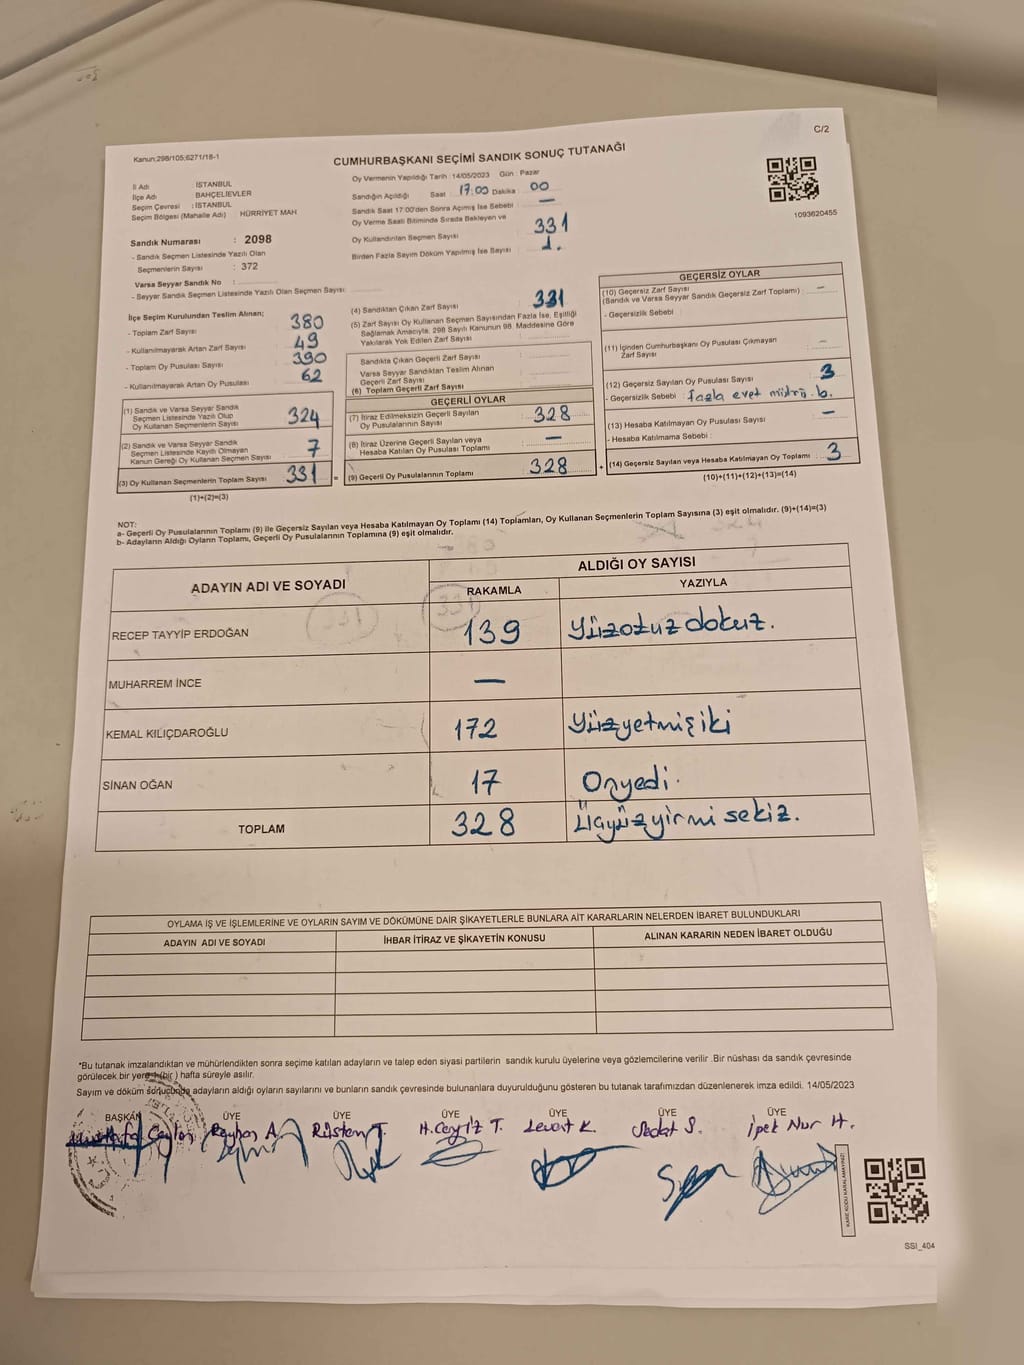 C/2
Kanun:298/105;6271/18-1
CUMHURBAŞKANI SEÇİMİ SANDIK SONUÇ TUTANAĞI
İl Adı : İSTANBUL
İlçe Adı : BAHÇELİEVLER
Seçim Çevresi : İSTANBUL
Seçim Bölgesi (Mahalle Adı) HÜRRİYET MAH
Sandık Numarası : 2098
- Sandık Seçmen Listesinde Yazılı Olan
Seçmenlerin Sayısı : 372
Varsa Seyyar Sandık No :
- Seyyar Sandık Seçmen Listesinde Yazılı Olan Seçmen Sayısı:
Oy Vermenin Yapıldığı Tarih :14/05/2023 Gün : Pazar
Sandığın Açıldığı Saat : 17:00 Dakika : 00
Sandık Saat 17:00'den Sonra Açımış İse Sebebi : —
Oy Verme Saati Bitiminde Sırada Bekleyen ve
Oy Kullandırılan Seçmen Sayısı 331
Birden Fazla Sayım Döküm Yapılmış İse Sayısı : 1.
1093620455
İlçe Seçim Kurulundan Teslim Alınan;
- Toplam Zarf Sayısı : 380
- Kullanılmayarak Artan Zarf Sayısı : 49
- Toplam Oy Pusulası Sayısı : 390
- Kullanılmayarak Artan Oy Pusulası : 62
(1) Sandık ve Varsa Seyyar Sandık
Seçmen Listesinde Yazılı Olup
Oy Kullanan Seçmenlerin Sayısı : 324
(2) Sandık ve Varsa Seyyar Sandık
Seçmen Listesinde Kayıtlı Olmayan
Kanun Gereği Oy Kullanan Seçmen Sayısı : 7
(3) Oy Kullanan Seçmenlerin Toplam Sayısı : 331
(1)+(2)=(3)
(4) Sandıktan Çıkan Zarf Sayısı : 331
(5) Zarf Sayısı Oy Kullanan Seçmen Sayısından Fazla İse, Eşitliği
Sağlamak Amacıyla, 298 Sayılı Kanunun 98. Maddesine Göre
Yakılarak Yok Edilen Zarf Sayısı :
Sandıkta Çıkan Geçerli Zarf Sayısı :
Varsa Seyyar Sandıktan Teslim Alınan
Geçerli Zarf Sayısı :
(6) Toplam Geçerli Zarf Sayısı :
GEÇERLİ OYLAR
(7) İtiraz Edilmeksizin Geçerli Sayılan
Oy Pusulasının Sayısı : 328
(8) İtiraz Üzerine Geçerli Sayılan veya
Hesaba Katılan Oy Pusulası Toplamı : —
(9) Geçerli Oy Pusulasının Toplamı : 328
GEÇERSİZ OYLAR
(10) Geçersiz Zarf Sayısı
(Sandık ve Varsa Seyyar Sandık Geçersiz Zarf Toplamı) : —
- Geçersizlik Sebebi :
(11) İçinden Cumhurbaşkanı Oy Pusulası Çıkmayan
Zarf Sayısı : —
(12) Geçersiz Sayılan Oy Pusulası Sayısı : 3
- Geçersizlik Sebebi : fazla evet mührü b.
(13) Hesaba Katılmayan Oy Pusulası Sayısı : —
- Hesaba Katılmama Sebebi :
(14) Geçersiz Sayılan veya Hesaba Katılmayan Oy Toplamı : 3
(10)+(11)+(12)+(13)=(14)
NOT:
a- Geçerli Oy Pusulalarının Toplamı (9) ile Geçersiz Sayılan veya Hesaba Katılmayan Oy Toplamı (14) Toplamları, Oy Kullanan Seçmenlerin Toplam Sayısına (3) eşit olmalıdır. (9)+(14)=(3)
b- Adayların Aldığı Oyların Toplamı, Geçerli Oy Pusulalarının Toplamına (9) eşit olmalıdır.
ADAYIN ADI VE SOYADI
ALDIĞI OY SAYISI
RAKAMLA YAZIYLA
RECEP TAYYİP ERDOĞAN 139 Yüzotuzdokuz.
MUHARREM İNCE —
KEMAL KILIÇDAROĞLU 172 Yüzyetmişiki
SİNAN OĞAN 17 Onyedi.
TOPLAM 328 Üçyüzyirmi sekiz.
OYLAMA İŞ VE İŞLEMLERİNE VE OYLARIN SAYIM VE DÖKÜMÜNE DAİR ŞİKAYETLERLE BUNLARA AİT KARARLARIN NELERDEN İBARET BULUNDUKLARI
ADAYIN ADI VE SOYADI İHBAR İTİRAZ VE ŞİKAYETİN KONUSU ALINAN KARARIN NEDEN İBARET OLDUĞU
*Bu tutanak imzalandıktan ve mühürlendikten sonra seçime katılan adayların ve talep eden siyasi partilerin sandık kurulu üyelerine veya gözlemcilerine verilir .Bir nüshası da sandık çevresinde
görülecek bir yere 1 (bir ) hafta süreyle asılır.
Sayım ve döküm sonucunda adayların aldığı oyların sayılarını ve bunların sandık çevresinde bulunanlara duyurulduğunu gösteren bu tutanak tarafımızdan düzenlenerek imza edildi. 14/05/2023
BAŞKAN ÜYE ÜYE ÜYE ÜYE ÜYE ÜYE
Mustafa Ceylan Reyhan A. Rüstem T. H.Cengiz T. Levent K. Sedat S. İpek Nur H.
KARE KODU KARALAMAYINIZ!
SSI_404